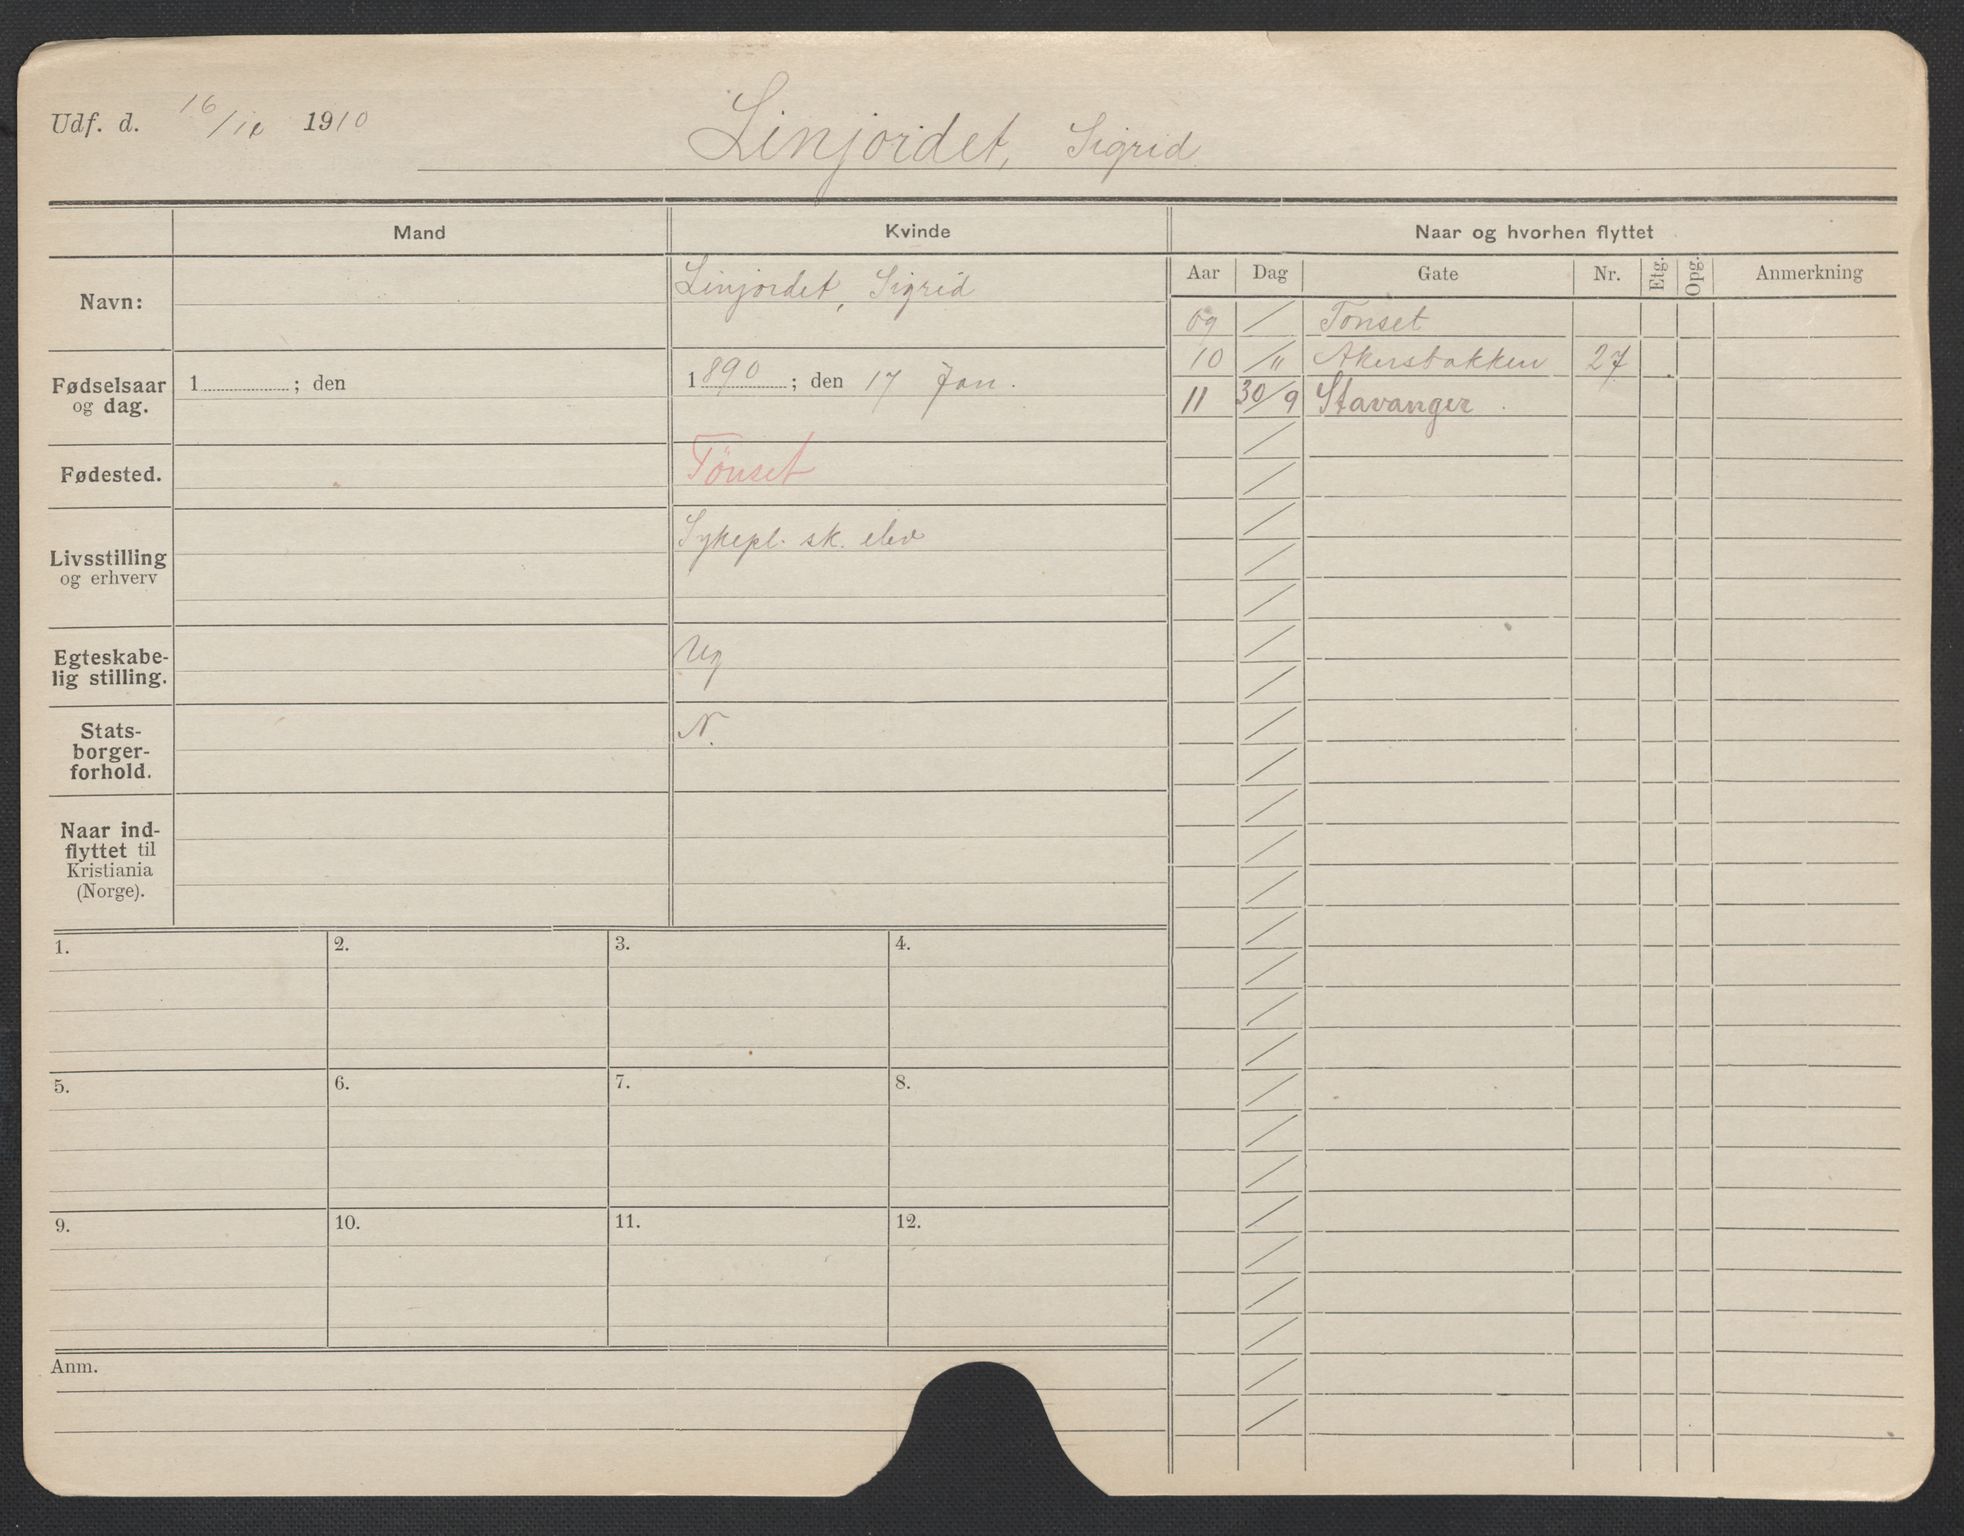 Udf. d. 16/12 1910
Linjordet, Sigrid
Mand
Kvinde
Naar og hvorhen flyttet
Navn:
Linjordet, Sigrid
Fødselsaar
og dag.
1 ; den
1890; den 17 Jan.
Fødested.
Tönset
Livsstilling
og erhverv
Sykepl. sk. elev
Egteskabe-
lig stilling.
Ug
Stats-
borger-
forhold.
N.
Naar ind-
flyttet til
Kristiania
(Norge).
Aar Dag Gate Nr. Etg. Opg. Anmerkning
09 / Tonset
10 /" Akersbakken 27
11 30/9 Stavanger.
1. 2. 3. 4.
5. 6. 7. 8.
9. 10. 11. 12.
Anm.